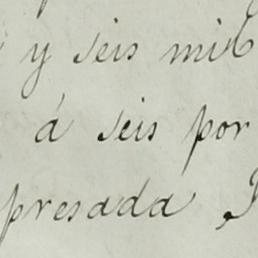 y seis mil
á seis por
presada